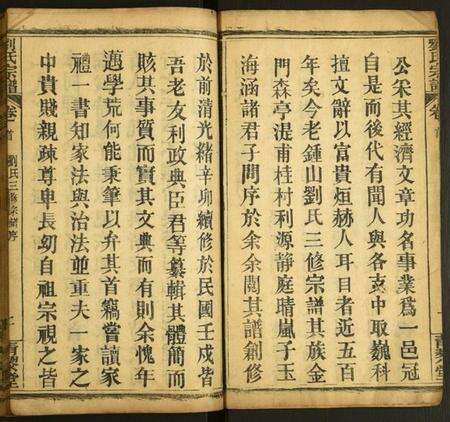 劉氏宗譜
卷首
公宋其經濟文章功名事業爲一邑冠
自是而後代有聞人與各支中取巍科
擅文辭以富貴烜赫人耳目者近五百
年矣今老鍾山劉氏三修宗譜其族金
門森亭湜甫桂村利源靜庭晴嵐子玉
海涵諸君子問序於余余閱其譜創修
於前清光緒辛卯續修於民國壬戍皆
吾老友利政典臣君等纂輯其體簡而
賅其事質而實其文典而有則余愧年
邁學荒何能秉筆以弁其首竊嘗讀家
禮一書知家法與治法並重夫一家之
中貴賤親疎尊卑長幼自祖宗視之皆
劉氏宗譜
卷首
劉氏三修